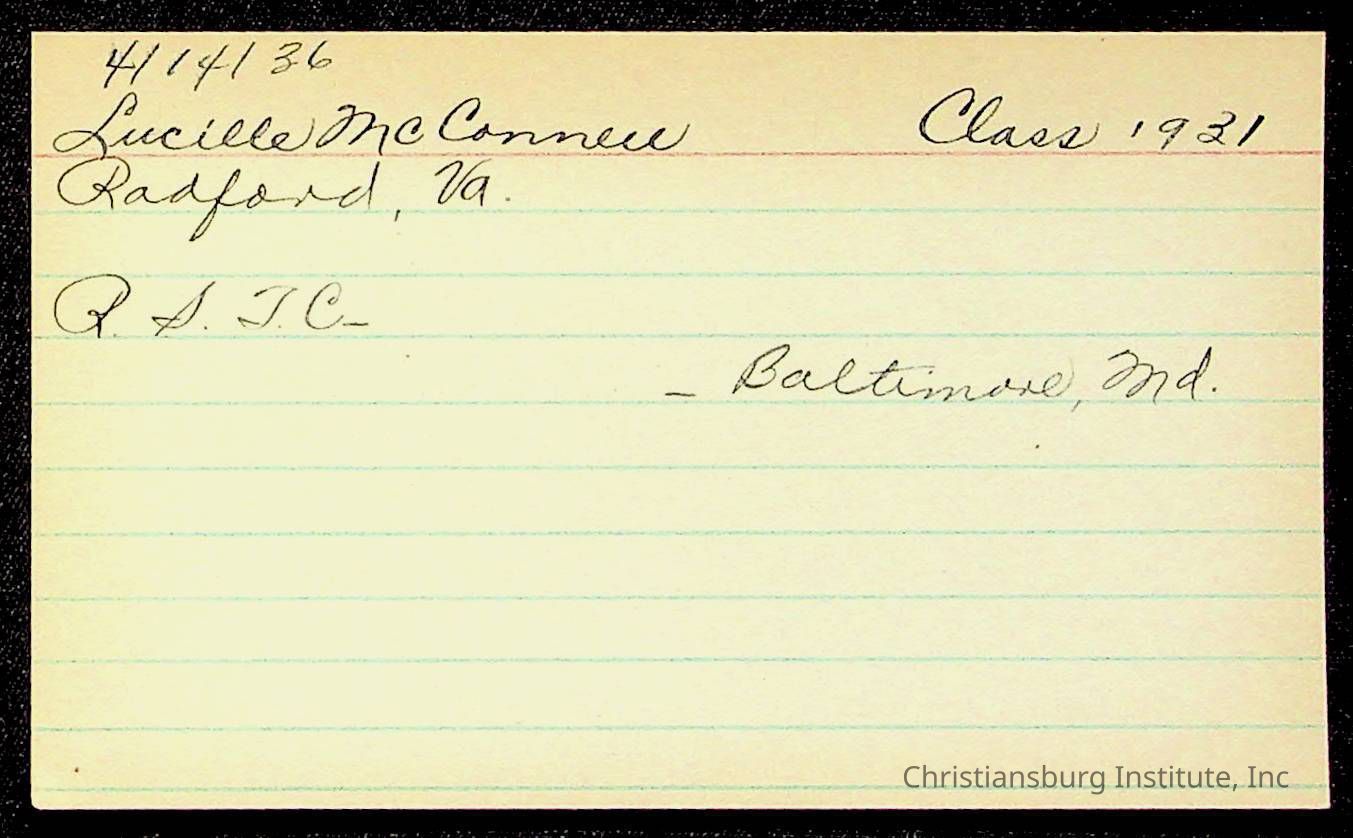 4/14/36
Lucille McConnell Class 1931
Radford, Va.
R. S. T. C–
– Baltimore, Md.
Christiansburg Institute, Inc